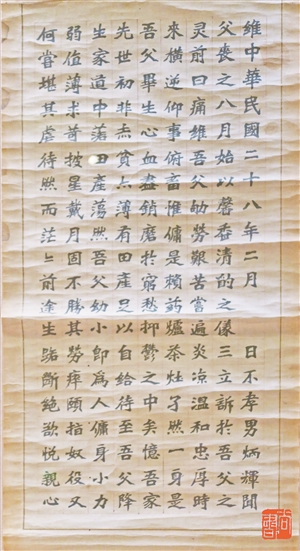 維中華民國二十八年二月 日不孝男炳輝聞
父喪之八月始以馨香清酌之儀三立訴於吾父之
灵前曰痛維吾父劬勞艱苦嘗遍炎凉溫和忠厚時
來橫逆仰事俯畜惟傭是賴葯爐茶灶了然一身是
吾父畢生心血盡銷磨於窮愁抑鬱之中矣憶吾家
先世初非赤貧亦薄有田產足以自給待至吾父降
生家道中落田產蕩然吾父幼小即為人傭身小力
弱位薄求苛披星戴月固不勝其勞瘁頤指奴役又
何嘗堪其虐待然而茫々前途生路斷絕欲悅親心